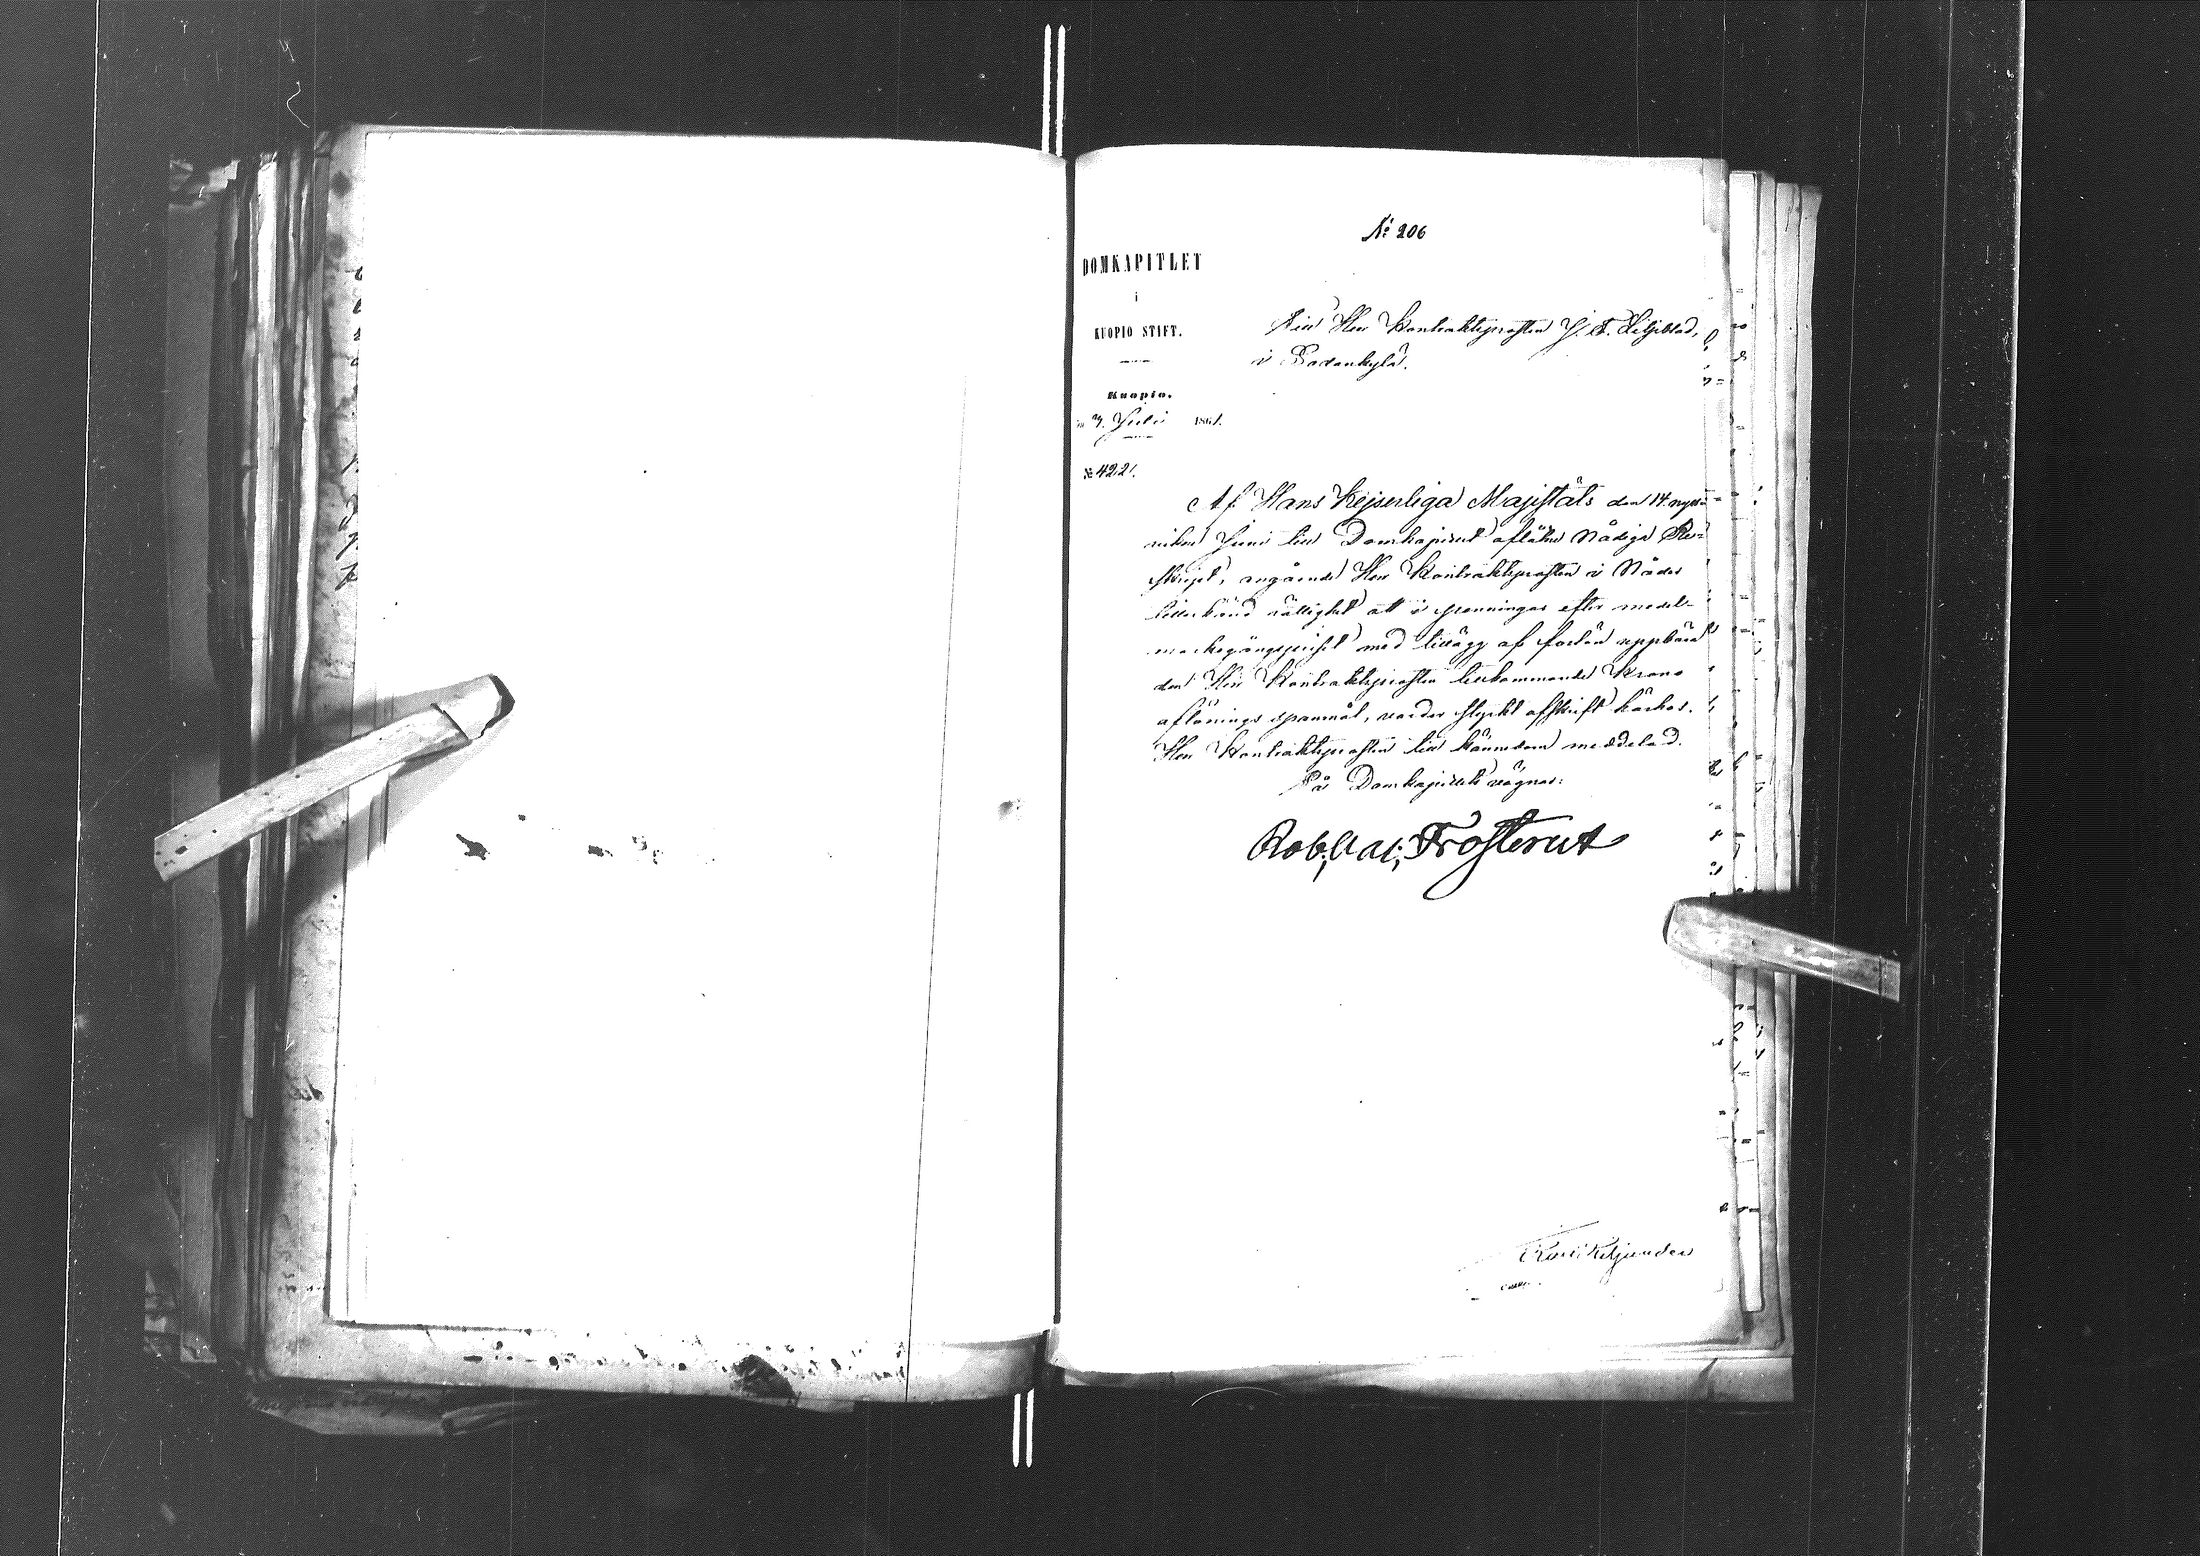 № 206
DOMKAPITLET
i
KUOPIO STIFT.
Kuopio,
3 Juli 1861.
№ 422.
Till Herr Kontraktsprosten J. F. Liljeblad,
i Sodankylä.
Af Hans Kejserliga Majestäts den 14 nyss-
vikne Juni till Domkapitlet aflåtne Nådiga Re-
skript, angående Herr Kontraktsprosten i Nåder
tillerkänd rättighet att i penningar efter medel-
markegångspriset med tillägg af forlön uppbära
den Herr Kontraktsprosten tillkommande Krono
aflönings spanmål, varder styrkt afskrift härhos
Herr Kontraktsprosten till kännedom meddelad.
På Domkapitlets vägnar:
Rob: Val: Frosterus